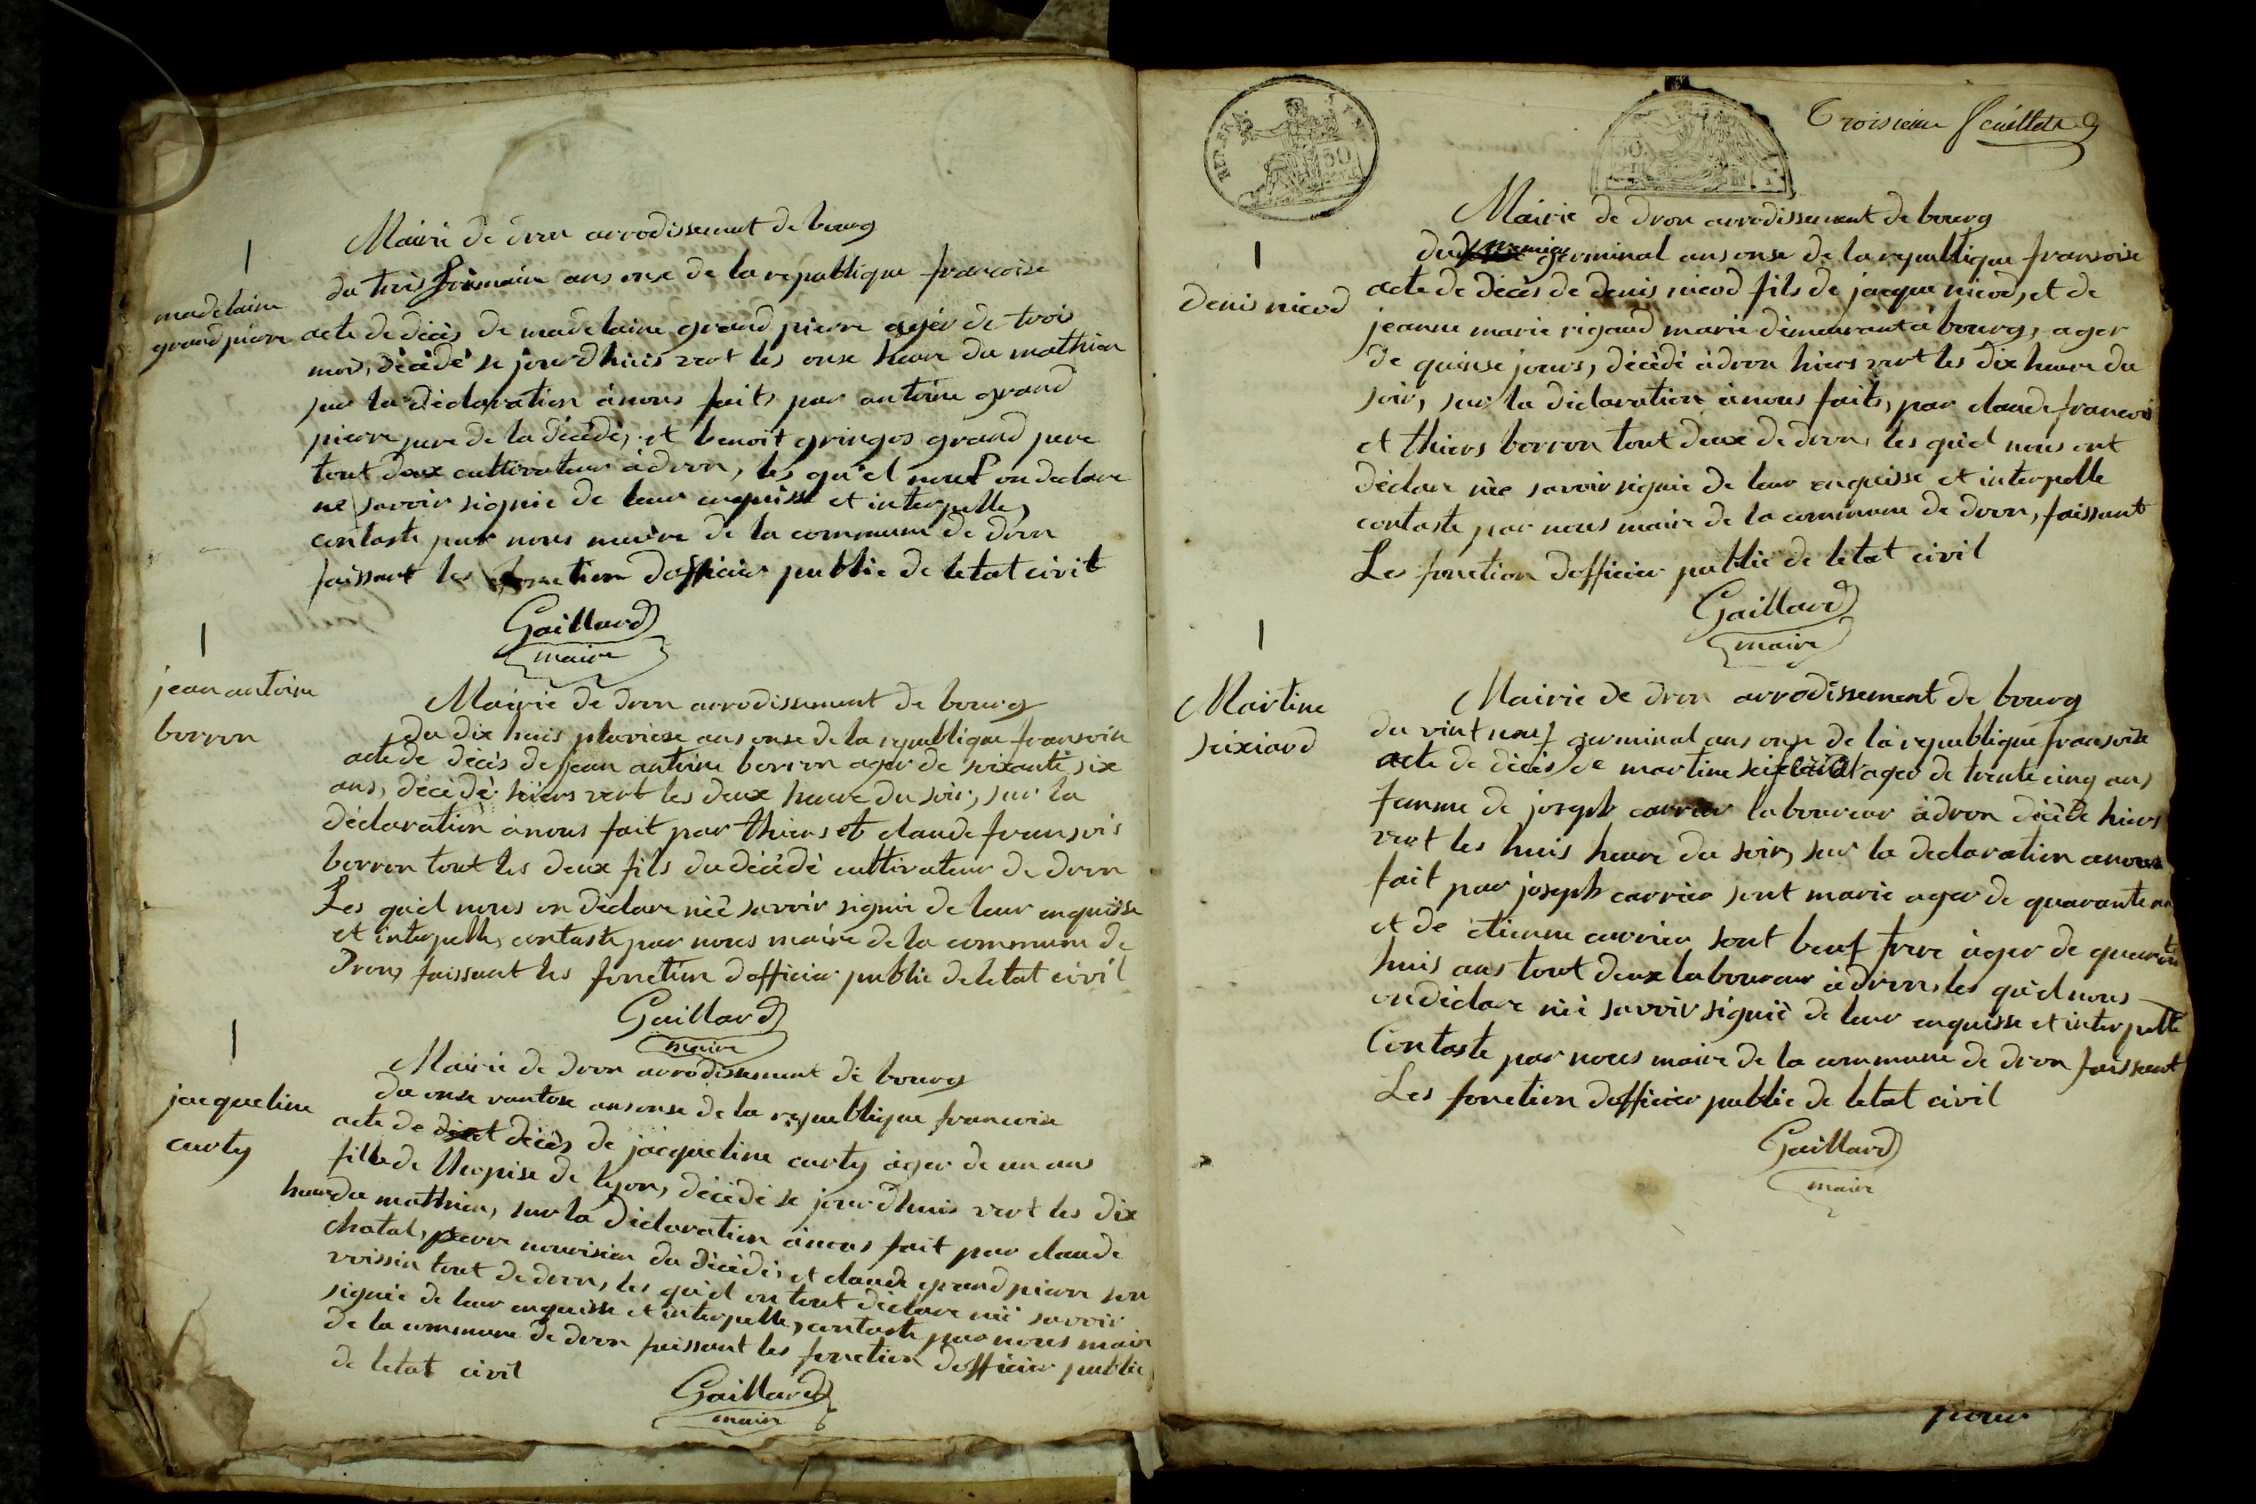 1
madelaine
grand pierre
Mairie de dron arrodissement de bourg
du trois frimaire ans onse de la republique francoise
acte de décès de madelaine grand pierre agér de trois
mois, décèdé se jourdhuis vert les onse heure du mathien
sur la déclaration ànous faits par antoine grand
pierre pere de la décèdé, et benoit gringos grand pere
tout deux cultivateur àdron, les qu'el nous on declare
ne savoir signie de leur enquisse et interpelle,
contaste par nous maire de la commune de dron
faissant les fonction dofficier public de letat civil
Gaillard
maire
1
jean antoine
borron
Mairie de dron arrodissement de bourg
du dix huis pluviose ans onse de la republique fransoise
acte de décès de jean antoine borron ager de soixante six
ans, décèdé hiers vert les deux heure du soir, sur la
déclaration ànous fait par thiers et claude fransois
borron tout les deux fils du décèdé cultivateur de dron
Les qu'el nous on déclare néè savoir signie de leur enquisse
et interpelle, contaste par nous maire de la commune de
dron, faissant les fonction dofficier public de letat civil
Gaillard
maire
1
jacqueline
curty
Mairie de dron arrodissement de bourg
du onse vantose ans onse de la republique francoise
acte de décès de jacqueline curty àger de un ans
fille de lhospise de lyon, décèdé se jourdhuis vert les dix
heure du mathien, sur la déclaration ànous fait par claude
chatal, pere nourisier du décèdé, et claude grand pierre son
voissin tout de dron, les qu'el on tout déclare néè savoir
signie de leur enquisse et interpelle, contaste par nous maire
de la commune de dron faissant les fonction dofficier public,
de letat civil
Gaillard
maire
REP. FRA
50
50
Troisieme feuillet
1
denis nicod
Mairie de dron arrodissement de bourg
du premier germinal ans onse de la republique fransoise
acte de décès de denis nicod fils de jacque nicod, et de
jeanne marie rigaud marie démeurant à bourg, ager
de quinse jours, décèdé àdron hiers vert les dix heure du
soir, sur la déclaration ànous faits, par claude francois
et thiers borron tout deux de dron, les qu'el nous ont
déclare néè savoir signie de leur enquisse et interpelle
contaste par nous maire de la commune de dron, faissant
Les fonction dofficier public de letat civil
Gaillard
maire
1
Martine
seixiard
Mairie de dron arrodissement de bourg
du vint neuf germinal ans onse de la republique fransoise
acte de décès de martine ager de trente cinq ans
femme de joseph carrier laboureur àdron décèdé hiers
vert les huis heure du soir, sur la declaration anous
fait par joseph carrier sont marie ager de quarante
et de étienne carrier sont beuf frere àger de quarante
huis ans tout deux laboureur àdron, les qu'el nous
on déclare néè savoir signiè de leur enquisse et interpelle
Contaste par nous maire de la commune de dron faissant
Les fonction dofficier public de letat civil
Gaillard
maire